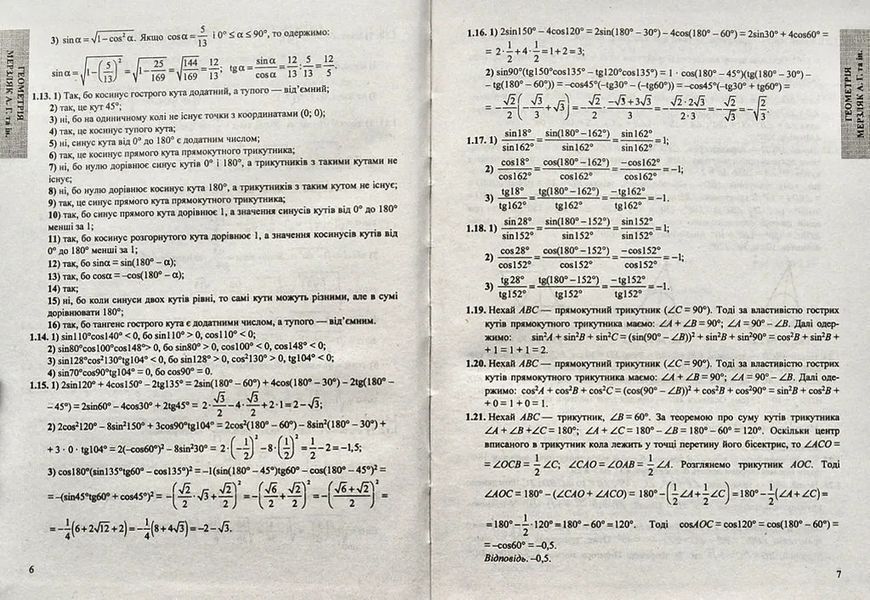 ГЕОМЕТРІЯ
МЕРЗЛЯК А. Г. та ін.
3) sinα = √(1 – cos²α). Якщо cosα = 5/13 і 0° ≤ α ≤ 90°, то одержимо:
sinα = √(1 – (5/13)²) = √(1 – 25/169) = √(144/169) = 12/13; tgα = sinα/cosα = 12/13 : 5/13 = 12/5.
1.13. 1) Так, бо косинус гострого кута додатний, а тупого — від'ємний;
2) так, це кут 45°;
3) ні, бо на одиничному колі не існує точки з координатами (0; 0);
4) так, це косинус тупого кута;
5) ні, синус кута від 0° до 180° є додатним числом;
6) так, це косинус прямого кута прямокутного трикутника;
7) ні, бо нулю дорівнює синус кутів 0° і 180°, а трикутників з такими кутами не
існує;
8) ні, бо нулю дорівнює косинус кута 180°, а трикутників з таким кутом не існує;
9) так, це синус прямого кута прямокутного трикутника;
10) так, бо синус прямого кута дорівнює 1, а значення синусів кутів від 0° до 180°
менші за 1;
11) так, бо косинус розгорнутого кута дорівнює 1, а значення косинусів кутів від
0° до 180° менші за 1;
12) так, бо sinα = sin(180° – α);
13) так, бо cosα = –cos(180° – α);
14) так;
15) ні, бо коли синуси двох кутів рівні, то самі кути можуть різними, але в сумі
дорівнювати 180°;
16) так, бо тангенс гострого кута є додатними числом, а тупого — від'ємним.
1.14. 1) sin110°cos140° < 0, бо sin110° > 0, cos110° < 0;
2) sin80°cos100°cos148°> 0, бо sin80° > 0, cos100° < 0, cos148° < 0;
3) sin128°cos²130°tg104° < 0, бо sin128° > 0, cos²130° > 0, tg104° < 0;
4) sin70°cos90°tg104° = 0, бо cos90° = 0.
1.15. 1) 2sin120° + 4cos150° – 2tg135° = 2sin(180° – 60°) + 4cos(180° – 30°) – 2tg(180° –
– 45°) = 2sin60° – 4cos30° + 2tg45° = 2·√3/2 – 4·√3/2 + 2·1 = 2 – √3;
2) 2cos²120° – 8sin²150° + 3cos90°tg104° = 2cos²(180° – 60°) – 8sin²(180° – 30°) +
+ 3 · 0 · tg104° = 2(–cos60°)² – 8sin²30° = 2·(–1/2)² – 8·(1/2)² = 1/2 – 2 = –1,5;
3) cos180°(sin135°tg60° – cos135°)² = –1(sin(180° – 45°)tg60° – cos(180° – 45°)² =
= –(sin45°tg60° + cos45°)² = –(√2/2·√3 + √2/2)² = –(√6/2 + √2/2)² = –((√6+√2)/2)² =
= –1/4(6 + 2√12 + 2) = –1/4(8 + 4√3) = –2 – √3.
6
1.16. 1) 2sin150° – 4cos120° = 2sin(180° – 30°) – 4cos(180° – 60°) = 2sin30° + 4cos60° =
= 2·1/2 + 4·1/2 = 1 + 2 = 3;
2) sin90°(tg150°cos135° – tg120°cos135°) = 1 · cos(180° – 45°)(tg(180° – 30°) –
– tg(180° – 60°)) = –cos45°(–tg30° – (–tg60°)) = –cos45°(–tg30° + tg60°) =
= –√2/2(–√3/3 + √3) = –√2/2·(–√3+3√3)/3 = –√2·2√3/2·3 = –√2/√3 = –√(2/3).
1.17. 1) sin18°/sin162° = sin(180° – 162°)/sin162° = sin162°/sin162° = 1;
2) cos18°/cos162° = cos(180° – 162°)/cos162° = –cos162°/cos162° = –1;
3) tg18°/tg162° = tg(180° – 162°)/tg162° = –tg162°/tg162° = –1.
1.18. 1) sin28°/sin152° = sin(180° – 152°)/sin152° = sin152°/sin152° = 1;
2) cos28°/cos152° = cos(180° – 152°)/cos152° = –cos152°/cos152° = –1;
3) tg28°/tg152° = tg(180° – 152°)/tg152° = –tg152°/tg152° = –1.
1.19. Нехай ABC — прямокутний трикутник (∠C = 90°). Тоді за властивістю гострих
кутів прямокутного трикутника маємо: ∠A + ∠B = 90°; ∠A = 90° – ∠B. Далі одер-
жимо: sin²A + sin²B + sin²C = (sin(90° – ∠B))² + sin²B + sin²90° = cos²B + sin²B +
+ 1 = 1 + 1 = 2.
1.20. Нехай ABC — прямокутний трикутник (∠C = 90°). Тоді за властивістю гострих
кутів прямокутного трикутника маємо: ∠A + ∠B = 90°; ∠A = 90° – ∠B. Далі оде-
ржимо: cos²A + cos²B + cos²C = (cos(90° – ∠B))² + cos²B + cos²90° = sin²B + cos²B +
+ 0 = 1 + 0 = 1.
1.21. Нехай ABC — трикутник, ∠B = 60°. За теоремою про суму кутів трикутника
∠A + ∠B +∠C = 180°; ∠A + ∠C = 180° – ∠B = 180° – 60° = 120°. Оскільки центр
вписаного в трикутник кола лежить у точці перетину його бісектрис, то ∠ACO =
= ∠OCB = 1/2 ∠C; ∠CAO = ∠OAB = 1/2 ∠A. Розглянемо трикутник AOC. Тоді
∠AOC = 180° – (∠CAO + ∠ACO) = 180° – (1/2∠A + 1/2∠C) = 180° – 1/2(∠A + ∠C) =
= 180° – 1/2·120° = 180° – 60° = 120°. Тоді cosAOC = cos120° = cos(180° – 60°) =
= –cos60° = –0,5.
Відповідь. –0,5.
7
ГЕОМЕТРІЯ
МЕРЗЛЯК А. Г. та ін.